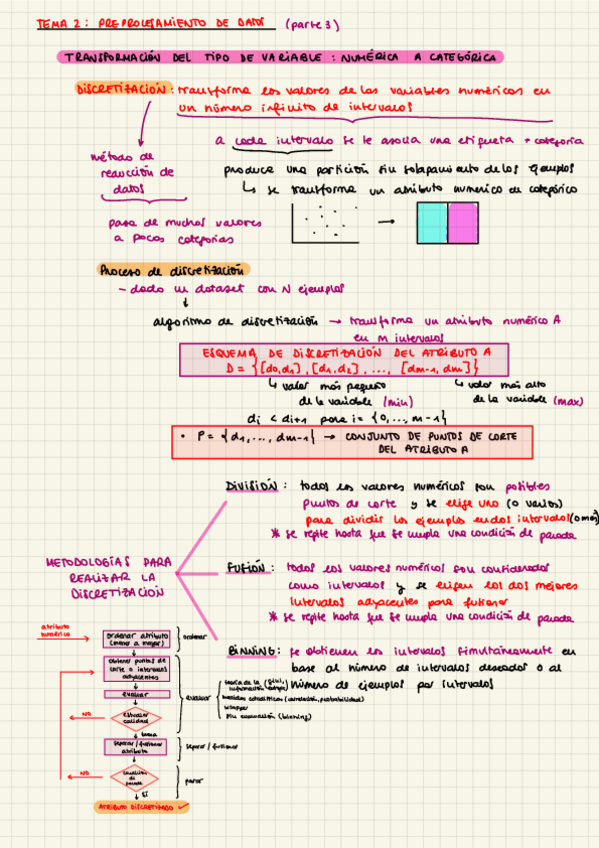 TEMA 2: PREPROCESAMIENTO DE DATOS (parte 3)
TRANSFORMACIÓN DEL TIPO DE VARIABLE: NUMÉRICA A CATEGÓRICA
DISCRETIZACIÓN: transforma los valores de las variables numéricas en
un número infinito de intervalos
a cada intervalo se le asocia una etiqueta → categoría
método de
reducción de
datos
produce una partición sin solapamiento de los ejemplos
↳ se transforma un atributo numérico de categórico
pasa de muchos valores
a pocas categorías
Proceso de discretización
- dado un dataset con N ejemplos
algoritmo de discretización → transforma un atributo numérico A
en m intervalos
ESQUEMA DE DISCRETIZACIÓN DEL ATRIBUTO A
D = {[d0,d1], [d1,d2], ..., [dm-1, dm]}
↳ valor más pequeño
de la variable (min)
↳ valor más alto
de la variable (max)
di < di+1 para i = {0, ..., m-1}
• P = {d1, ..., dm-1} → CONJUNTO DE PUNTOS DE CORTE
DEL ATRIBUTO A
METODOLOGÍAS PARA
REALIZAR LA
DISCRETIZACIÓN
DIVISIÓN: todos los valores numéricos son posibles
puntos de corte y se elige uno (o varios)
para dividir los ejemplos en dos intervalos (o más)
* se repite hasta que se cumpla una condición de parada
FUSIÓN: todos los valores numéricos son considerados
como intervalos y se eligen los dos mejores
intervalos adyacentes para fusionar
* se repite hasta que se cumpla una condición de parada
BINNING: se obtienen los intervalos simultáneamente en
base al número de intervalos deseados o al
número de ejemplos por intervalos
atributo
numérico
ordenar atributo
(menor a mayor)
ordenar
obtener puntos de
corte o intervalos
adyacentes
evaluar
evaluar
teoría de la información
medidas estadísticas (correlación, probabilidad)
wrapper
sin evaluación (binning)
NO
evaluar
calidad
buena
separar / fusionar
atributo
separar / fusionar
NO
condición
de
parada
parar
SÍ
ATRIBUTO DISCRETIZADO ✓